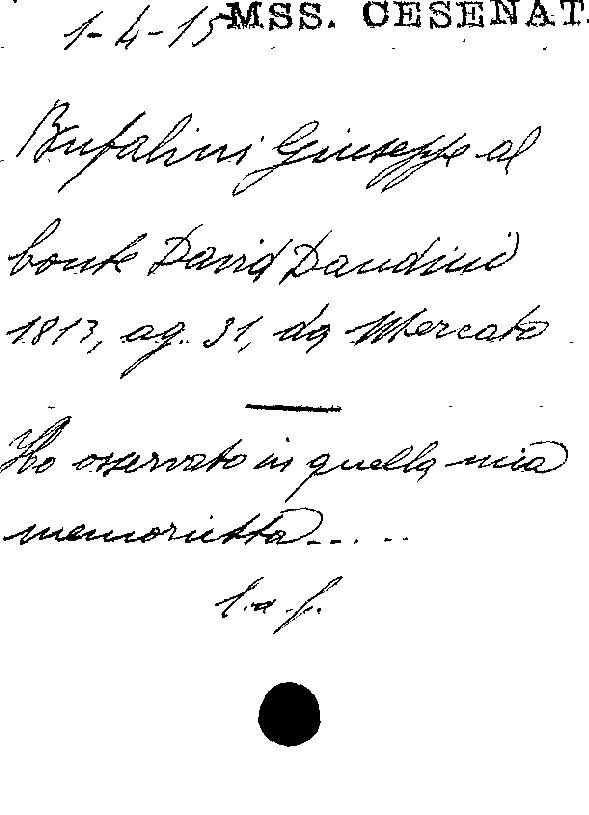 1-4-15 MSS. CESENAT.
Bufalini Giuseppe al
Conte David Dandini
1813, ag. 31, da Mercato
Ho osservato in quella mia
memorietta.....
l. a. f.